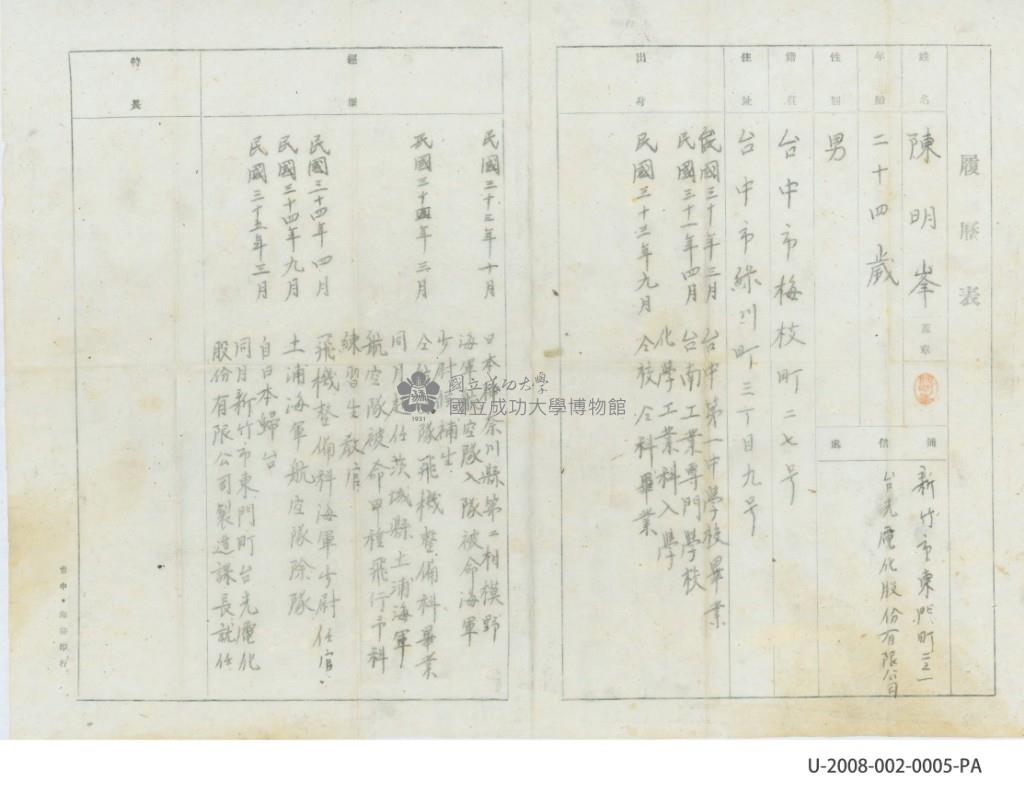 履歷表
姓名
陳明峯
蓋章
通信處
新竹市東門町二之一
台光電化股份有限公司
年齡
二十四歲
性別
男
籍貫
台中市梅枝町二七号
住址
台中市綠川町三丁目九号
出身
民國三十年三月 台中第一中學校畢業
民國三十一年四月 台南工業專門學校
化學工業科入學
民國三十三年九月 仝校仝科畢業
經歷
民國三十三年十月 日本神奈川縣第二相模野
海軍航空隊入隊被命海軍
少尉候補生
民國三十四年三月 仝航空隊飛機整備科畢業
同月赴任茨城縣土浦海軍
航空隊被命甲種飛行予科
練習生教官
民國三十四年四月 飛機整備科海軍少尉任官.
民國三十四年九月 土浦海軍航空隊除隊
民國三十五年三月 自日本歸台
同月新竹市東門町台光電化
股份有限公司製造課長就任
特長
印行
國立成功大學
國立成功大學博物館
1931
U-2008-002-0005-PA